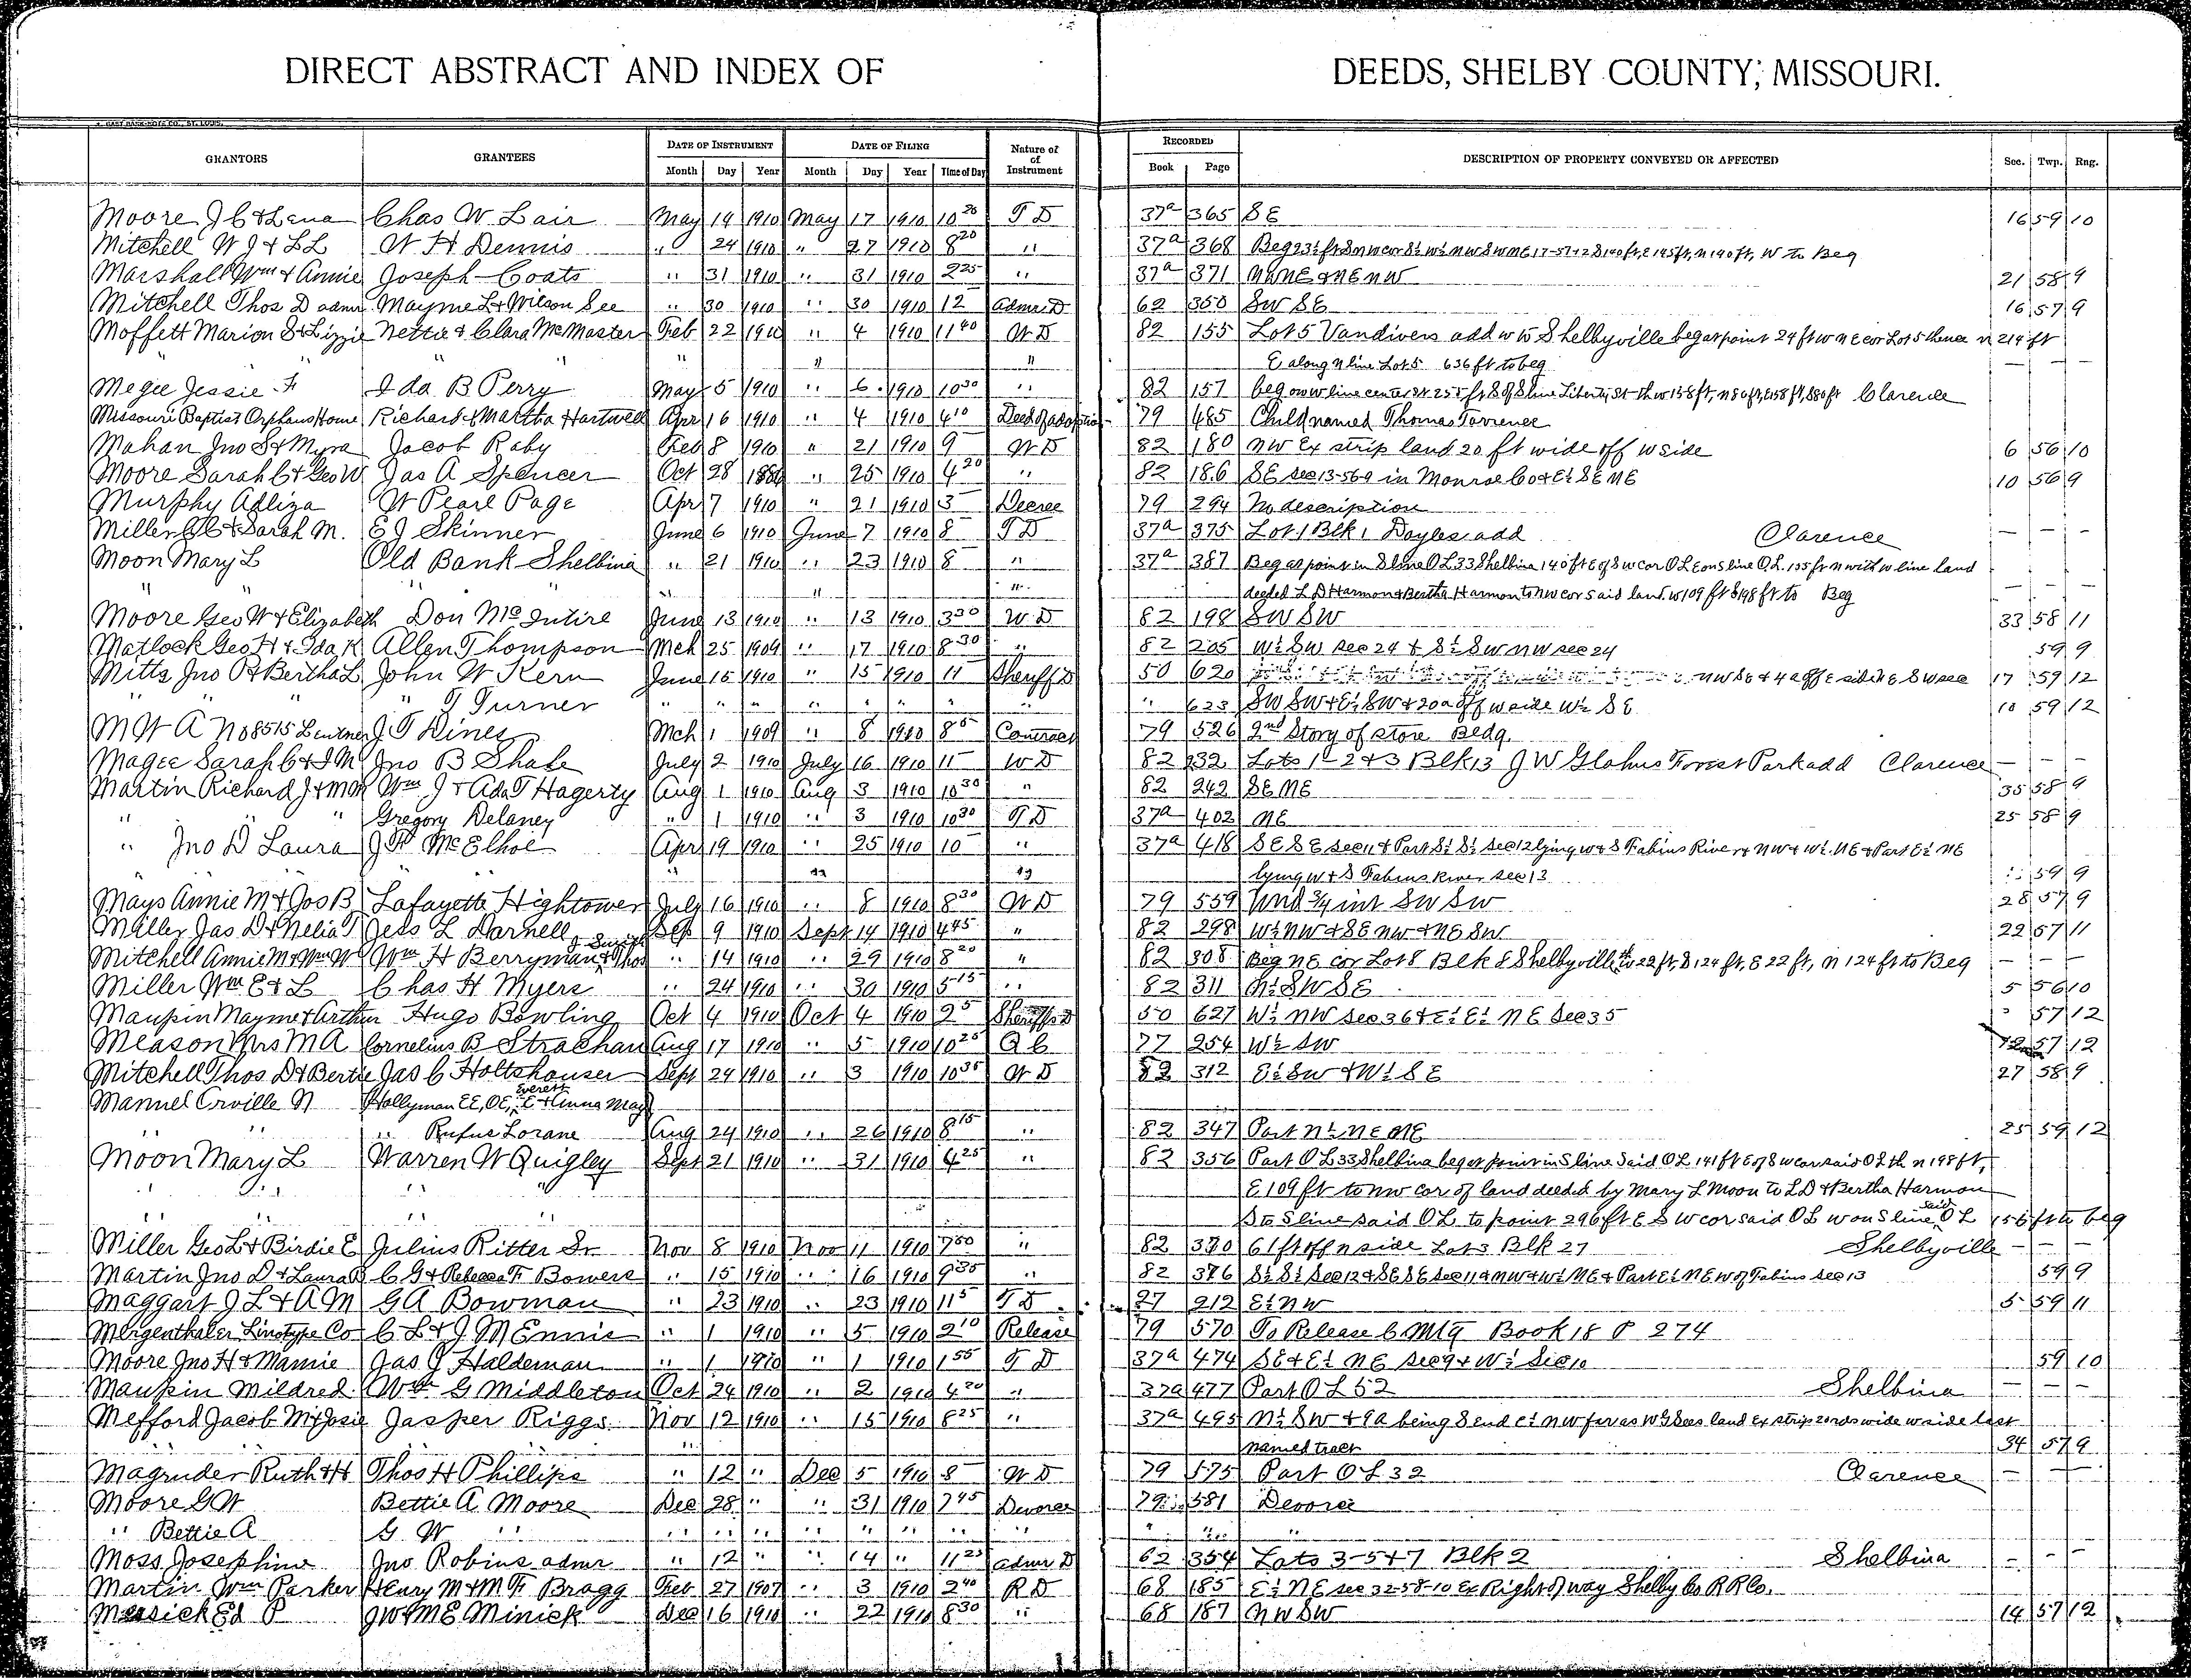 DIRECT ABSTRACT AND INDEX OF DEEDS, SHELBY COUNTY, MISSOURI.
GRANTORS GRANTEES DATE OF INSTRUMENT DATE OF FILING Nature of of Instrument RECORDED DESCRIPTION OF PROPERTY CONVEYED OR AFFECTED Sec. Twp. Rng.
Month Day Year Month Day Year Time of Day Book Page
Moore J C & Lena Chas W Lair May 19 1910 May 17 1910 10 20 T D 37a 365 SE 16 59 10
Mitchell W J & L L W H Dennis " 24 1910 " 27 1910 8 20 " 37a 368 W to Beg
Marshall Wm & Annie Joseph Coats " 31 1910 " 31 1910 2 25 " 37a 371 NWNE & NE NW 21 58 9
Mitchell Thos D admr Mayme L & Wilson See " 30 1910 " 30 1910 12 Admr D 62 350 SW SE 16 57 9
Moffett Marion S & Lizzie Nettie & Clara McMaster Feb 22 1910 " 4 1910 11 40 W D 82 155 Lot 5 Vandivers add w to Shelbyville beg at point 29 ft w n E cor Lot 5 thence n 214 ft
" " " " " " E along N line Lot 5 636 ft to beg — —
Megee Jessie F Ida B Perry May 5 1910 " 6 1910 10 30 " 82 157 beg on w line center St 255 ft S of S line Liberty St th w 158 ft, n 80 ft, E 158 ft, S 80 ft Clarence
Missouri Baptist Orphans Home Richard & Martha Hartwell Apr 16 1910 " 4 1910 4 10 Deed of adoption 79 485 Child named Thomas Torrence
Mahan Jno S & Myra Jacob Raby Feb 8 1910 " 21 1910 9 W D 82 180 NW Ex strip land 20 ft wide off w side 6 56 10
Moore Sarah C & Geo W Jas A Spencer Oct 28 1886 " 25 1910 4 20 " 82 186 SE sec 13-56-9 in Monroe Co & E½ SE NE 10 56 9
Murphy Adliza W Pearl Page Apr 7 1910 " 21 1910 3 Decree 79 294 No description
Miller & Sarah M. E J Skinner June 6 1910 June 7 1910 8 T D 37a 375 Lot 1 Blk 1 Doyles add Clarence — — —
Moon Mary L Old Bank Shelbina " 21 1910 " 23 1910 8 " 37a 387 Beg at point in S line OL 33 Shelbina 140 ft E of SW cor OL E on S line O.L. 155 ft n with w line land
" " " " " " deeded L D Harmon & Bertha Harmon to NW cor said land w 109 ft S 198 ft to Beg — — —
Moore Geo W & Elizabeth Don McIntire June 13 1910 " 13 1910 3 30 W D 82 198 SW SW 33 58 11
Matlock Geo H & Ida K Allen Thompson Mch 25 1909 " 17 1910 8 30 " 82 205 W½ SW sec 24 & S½ SW NW sec 24 59 9
Mitts Jno R & Bertha L John W Kern June 15 1910 " 15 1910 11 Sheriff D 50 620 17 59 12
" " T Turner " " " " " " " " " 623 SW SW & E½ SW & 20a off w side W½ SE 10 59 12
M W A No 8515 J T Dines Mch 1 1909 " 8 1910 8 Contract 79 526 2nd Story of store Bldg.
Magee Sarah C & J M Jno B Shale July 2 1910 July 16 1910 11 W D 82 232 Lots 1-2 & 3 Blk 13 J W Glahns Forest Park add Clarence — — —
Martin Richard J & Wm J & Ada T Hagerty Aug 1 1910 Aug 3 1910 10 30 " 82 242 SE NE 35 58 9
" " Gregory Delaney " 1 1910 " 3 1910 10 30 T D 37a 402 NE 25 58 9
" Jno D Laura J R McElhoe Apr 19 1910 " 25 1910 10 " 37a 418 SE SE sec 11 & Part S½ S½ sec 12 lying w & S Fabius River & NW & W½ NE & Part E½ NE
" " " lying W & S Fabius River sec 13 59 9
Mays Annie M & Jos B Lafayette Hightower July 16 1910 " 8 1910 8 30 W D 79 559 Und ¾ int SW SW 28 57 9
Miller Jas D & Nelia T Jess L Darnell Sep 9 1910 Sept 14 1910 4 45 " 82 298 W½ NW & SE NW & NE SW 22 57 11
Mitchell Annie M & Wm W Wm H Berryman & Thos " 14 1910 " 29 1910 8 20 " 82 308 Beg NE cor Lot 8 Blk 8 Shelbyville, th w 22 ft, S 124 ft, E 22 ft, n 124 ft to Beg — — —
Miller Wm E & L Chas H Myers " 24 1910 " 30 1910 5 15 " 82 311 N½ SW SE 5 56 10
Maupin Mayme & Arthur Hugo Bowling Oct 4 1910 Oct 4 1910 2 5 Sheriffs D 50 627 W½ NW sec 36 & E½ E½ NE Sec 35 57 12
Meason Mrs M A Cornelius B Strachan Aug 17 1910 " 5 1910 10 25 Q C 77 254 W½ SW 57 12
Mitchell Thos D & Bertie Jas C Holtshouser Sept 24 1910 " 3 1910 10 35 W D 82 312 E½ SW & W½ SE 27 58 9
Manuel Orville N Hollyman EE, OE, Everett E & Anna May
" " " Rufus Lorane Aug 24 1910 " 26 1910 8 15 " 82 347 Part N½ NE NE 25 59 12
Moon Mary L Warren W Quigley Sept 21 1910 " 31 1910 4 25 " 82 356 Part OL 33 Shelbina beg at point in S line said OL 141 ft E of SW cor said OL th n 198 ft,
" " " " E 109 ft to NW cor of land deeded by Mary L Moon to L D & Bertha Harmon
" " " " S to S line said OL to point 296 ft E SW cor said OL w on S line said OL 156 ft to beg
Miller Geo L & Birdie E Julius Ritter Sr Nov 8 1910 Nov 11 1910 7 50 " 82 370 61 ft off n side Lot 3 Blk 27 Shelbyville — — —
Martin Jno D & Laura B C G & Rebecca F Bowers " 15 1910 " 16 1910 9 35 " 82 376 S½ S½ Sec 12 & SE SE Sec 11 & NW & W½ NE & Part E½ NE w of Fabius sec 13 59 9
Maggart J L & A M G A Bowman " 23 1910 " 23 1910 11 5 T D 27 212 E½ NW 5 59 11
Mergenthaler Linotype Co C L & J M Ennis " 1 1910 " 5 1910 2 10 Release 79 570 To Release C Mtg Book 18 P 274
Moore Jno H & Mamie Jas G Haldeman " 1 1910 " 1 1910 1 55 T D 37a 474 SE & E½ NE sec 9 & W½ Sec 10 59 10
Maupin Mildred Wm G Middleton Oct 24 1910 " 2 1910 4 20 " 37a 477 Part OL 52 Shelbina — — —
Mefford Jacob M & Josie Jasper Riggs Nov 12 1910 " 15 1910 8 25 " 37a 495 N½ SW & 9a being S end E½ NW far as W G Sees land Ex strip 20 rds wide w side last
" named tract 34 57 9
Magruder Ruth & H Thos H Phillips " 12 " Dec 5 1910 8 W D 79 575 Part OL 32 Clarence — —
Moore G W Bettie A Moore Dec 28 " " 31 1910 7 45 Devorce 79 581 Devorce
" Bettie A G W " " " " " " " " " " " "
Moss Josephine Jno Robins admr " 12 " " 14 " 11 25 Admr D 62 354 Lots 3-5 & 7 Blk 2 Shelbina — — —
Martin Wm Parker Henry M & M F Bragg Feb 27 1907 " 3 1910 2 40 R D 68 185 E½ NE sec 32-58-10 Ex Right of way Shelby Co R R Co.
Messick Ed P JW & M E Minick Dec 16 1910 " 22 1910 8 30 " 68 187 NW SW 14 57 12